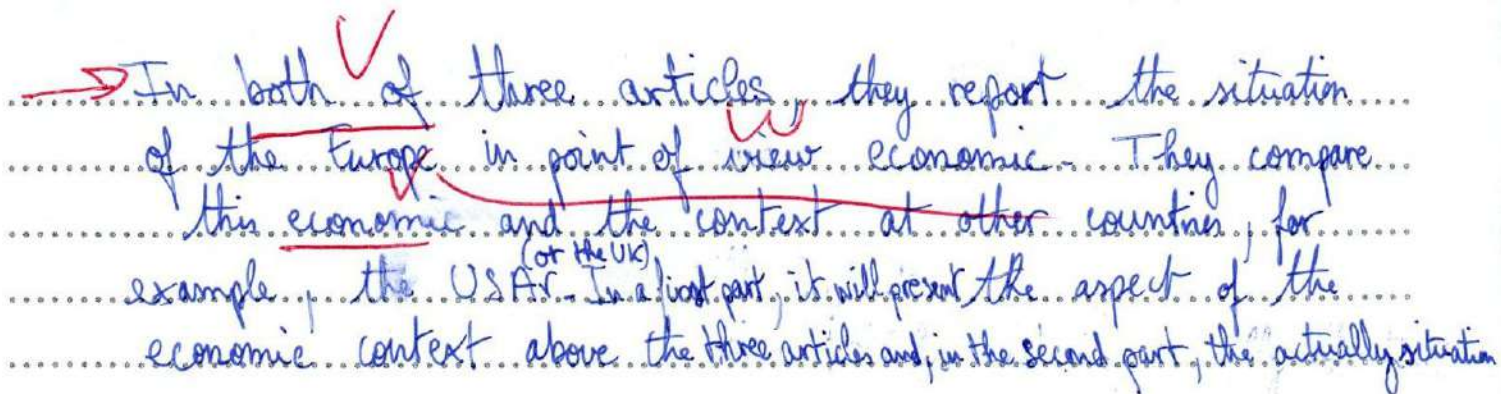 In both of three articles, they report the situation
of the Europe in point of view economic. They compare
this economic and the context at other countries, for
example, the USA (or the UK). In a first part, it will present the aspect of the
economic context above the three articles and, in the second part, the actually situation